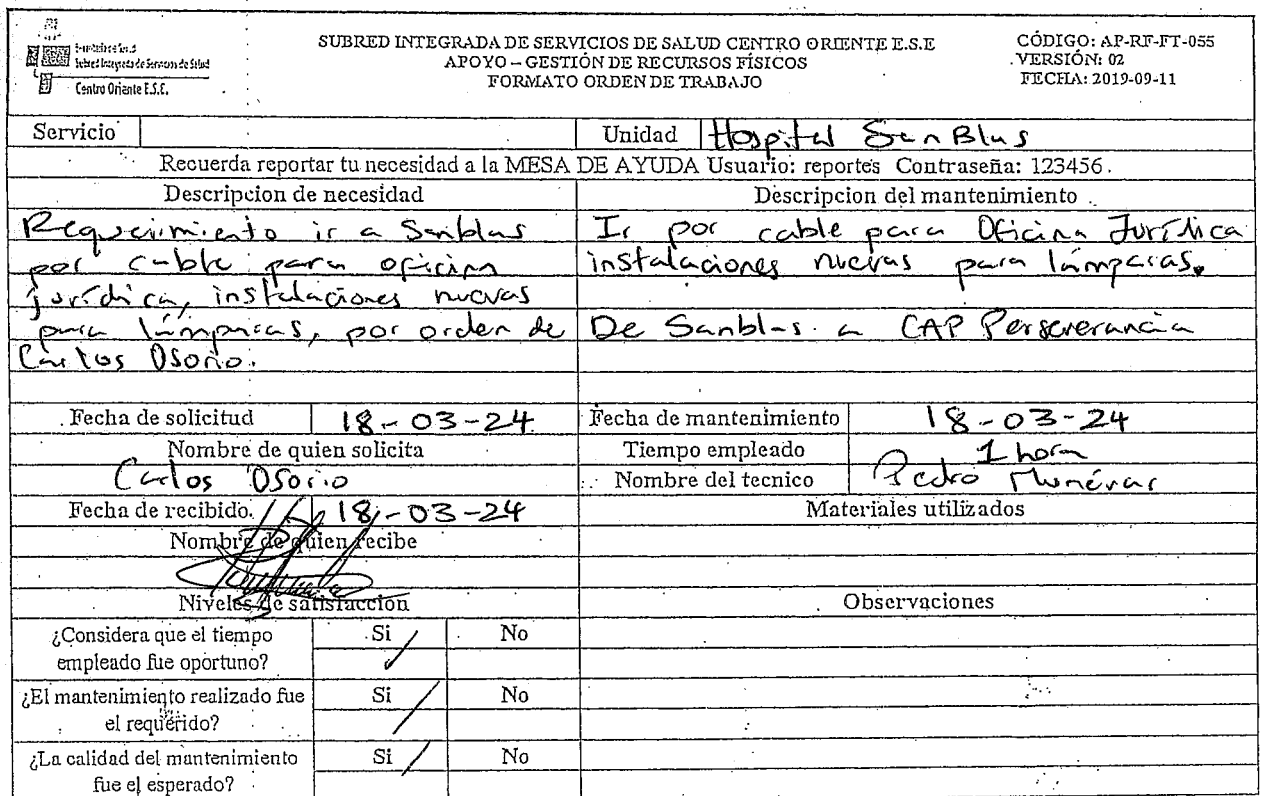 SUBRED INTEGRADA DE SERVICIOS DE SALUD CENTRO ORIENTE E.S.E
APOYO – GESTIÓN DE RECURSOS FÍSICOS
FORMATO ORDEN DE TRABAJO
CÓDIGO: AP-RF-FT-055
VERSIÓN: 02
FECHA: 2019-09-11
Subred Integrada de Servicios de Salud
Centro Oriente E.S.E.
Servicio
Unidad Hospital San Blas
Recuerda reportar tu necesidad a la MESA DE AYUDA Usuario: reportes Contraseña: 123456.
Descripcion de necesidad
Requerimiento ir a Sanblas
por cable para oficina
jurídica, instalaciones nuevas
para lámparas, por orden de
Carlos Osorio.
Descripcion del mantenimiento
Ir por cable para Oficina Jurídica
instalaciones nuevas para lámparas.
De Sanblas a CAP Perseverancia
Fecha de solicitud 18-03-24
Fecha de mantenimiento 18-03-24
Nombre de quien solicita
Carlos Osorio
Tiempo empleado 1 hora
Nombre del tecnico Pedro Munévar
Fecha de recibido 18-03-24
Materiales utilizados
Nombre de quien recibe
Niveles de satisfacción
Observaciones
¿Considera que el tiempo
empleado fue oportuno?
Si No
¿El mantenimiento realizado fue
el requerido?
Si No
¿La calidad del mantenimiento
fue el esperado?
Si No